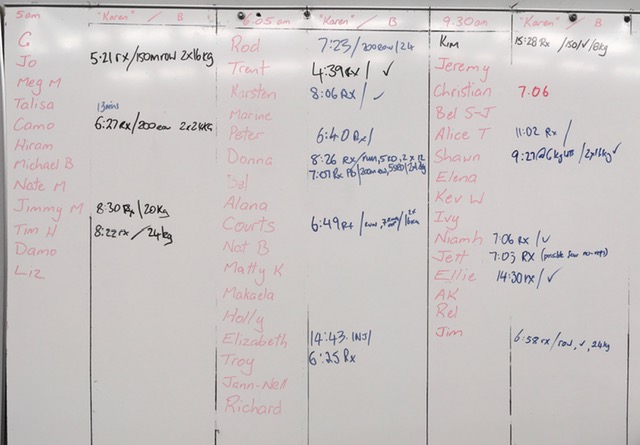 5am "Karen" / B
C
Jo 5:21 rx/150m row 2x16kg
Meg M
Talisa
Camo 6:27 Rx/200
Hiram
Michael B
Nate M
Jimmy M 8:30 Rx/20kg
Tim H 8:22 rx/24kg
Damo
Liz
6:05 am "Karen" / B
Rod 7:23/200 row/24
Trent 4:39 Rx/ ✓
Karsten 8:06 Rx/ ✓
Marine
Peter 6:40 Rx/
Donna 8:26 Rx/run, 2 x 12
7:07 Rx PB/
Alana
Courts 6:49 Rx/
Nat B
Matty K
Makaela
Holly
Elizabeth 14:43 INJ/
Troy 6:25 Rx
Jann-Nell
Richard
9.30am "Karen" / B
Kim 15:28 Rx /150/✓/8kg
Jeremy
Christian 7.06
Bel S-J
Alice T 11:02 Rx /
Shawn 9:27@6kg /2x16kg ✓
Elena
Kev W
Ivy
Niamh 7:06 Rx/✓
Jett 7:03 RX (possible few no-reps)
Ellie 14:30 rx/✓
AK
Rel
Jim 6:58 rx/row, ✓, 24kg